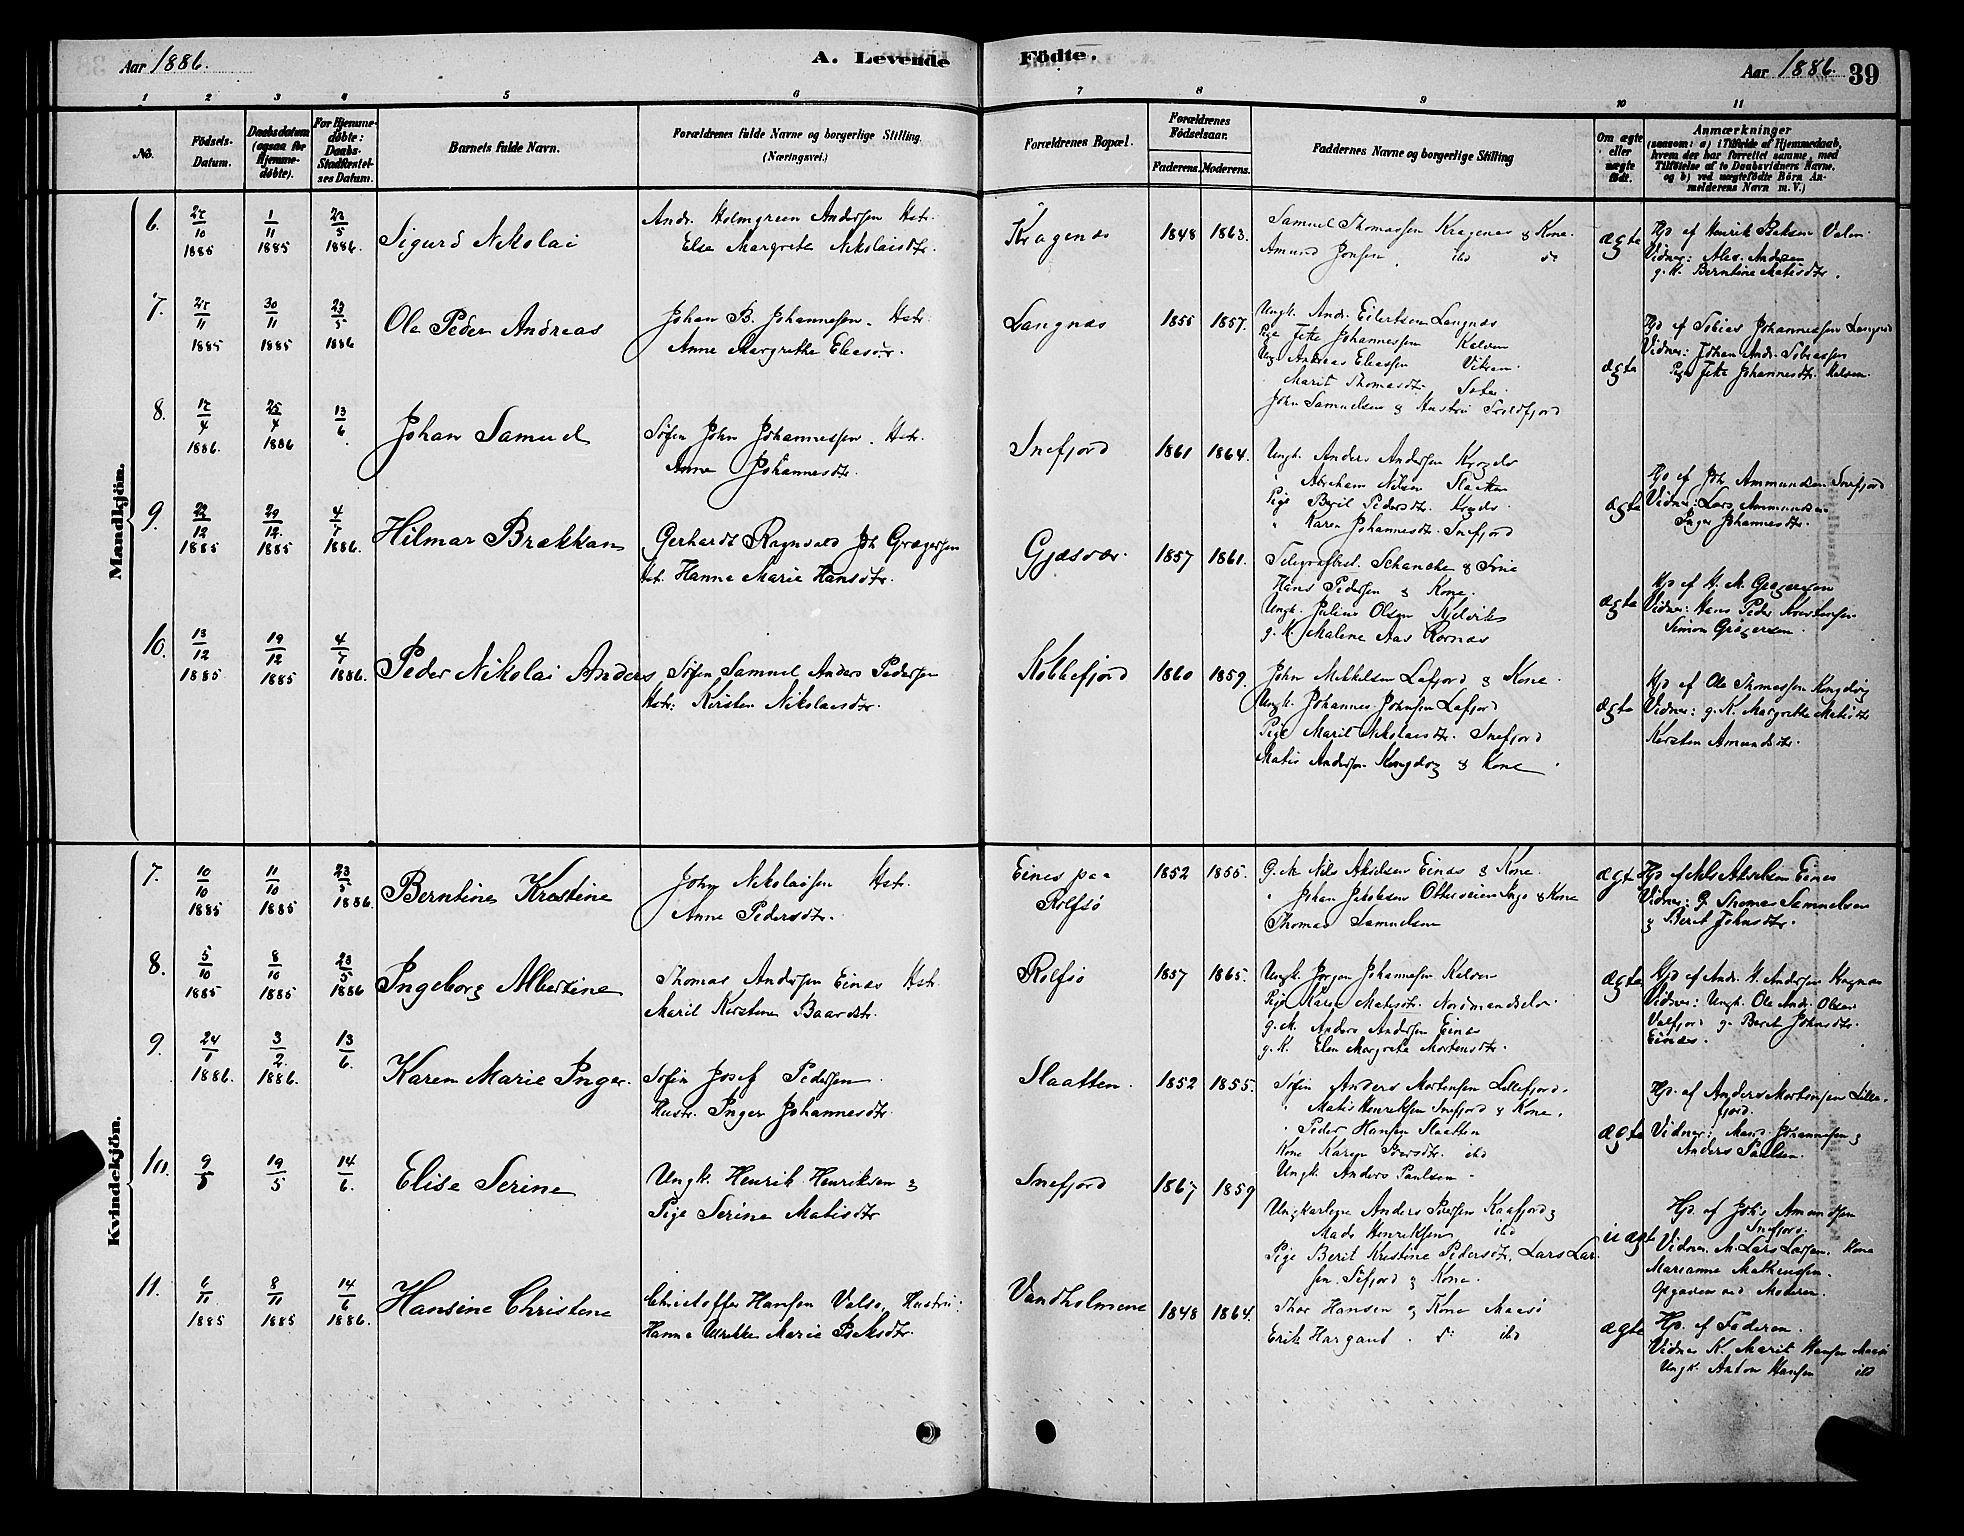 Aar 1886.
A. Levende Födte.
Aar 1886. 39
1 2 3 4 5 6 7 8 9 10 11
No.
Födsels-Datum.
Daabsdatum (ogsaa for Hjemmedöbte).
For Hjemmedöbte: Daabs-Stadfæstelses Datum.
Barnets fulde Navn.
Forældrenes fulde Navne og borgerlige Stilling. (Næringsvei.)
Forældrenes Bopæl.
Forældrenes Födselsaar.
Faderens. Moderens.
Faddernes Navne og borgerlige Stilling
Om ægte eller uægte födt.
Anmærkninger
(saasom: a) i Tilfælde af Hjemmedaab, hvem der har forrettet samme, med Tilföielse af to Daabsvidners Navne, og b) ved uægtefödte Börn Anmelderens Navn m. V.)
Mandkjön.
6. 1/11 1885 5 1886. Sigurd Nikolai
Andr. Holmgreen Andersen Hstr.
Else Margrete Nikolaisdtr.
Kragenæs 1848 1863.
Samuel Thomassen Kragenæs & Kone.
Amund Jonsen ibd do
ægte
Hjd af Henrik
Vidner:
g. K. Berntine Matisdtr.
7. 11 1885 30/11 1885 23/5 1886 Ole Peder Andreas
Johan B. Johannesen. Hstr.
Anne Margrethe Eliasdtr.
Langnæs 1855 1857.
Ungk. Andr. Eilertsen Langnæs
Pige Jette Johannessen Kelven
Ung. Andreas Eliassen
Marit Thomasdtr.
John Samuelsen & Hustru
ægte
Hjd af Tobias Johannessen Langnæs
Vidner: Johan Andr. Tobiassen
Pige Jette Johannesdtr. Kelven.
8. 4 1886. 25/4 1886 13/6 Johan Samuel
Søfin John Johannessen. Hstr.
Anne Johannesdtr.
Snefjord 1861 1864.
Ungk. Anders Andersen
Abraham Nilsen Slaatten
Pige Berit Pedersdtr.
" Karen Johannesdtr. Snefjord
ægte
Hjd af Joh. Ammundsen Snefjord
Vidner: Lars Ammundsen
Inger Johannesdtr.
9. 22/12 1885 29/12. 1885 4/7 1886. Hilmar Brækkan
Gerhardt Ragnvald Joh Grøgersen
Hst. Hanna Marie Hansdtr.
Gjæsvær. 1857 1861.
Telegrafbest. Schanche & Frue
Hans Pedersen & Kone.
Ungk. Julius Olsen Kjelvik
g. K. Malene Aas Kornæs
ægte
Hjd af H. M. Grøgersen
Vidner: Hans Peder
Simon Grøgersen.
10. 13/12 1885 19/12 1885 4/7 1886. Peder Nikolai Anders
Søfin Samuel Anders Pedersen
Hstr: Kirsten Nikolaisdtr.
Kobbefjord 1860 1859.
John Mikkelsen Lafjord & Kone.
Ungk. Johannes Johnsen Lafjord
Pige Marit Nikolaisdtr. Snefjord
Matis Andersen & Kone
ægte
Hjd af Ole Thomassen
Vidner: g. K. Margrethe Matisdtr
Kirsten Amundsdtr.
Kvindekjön.
7. 10/10 1885 11/10 1885 23/5 1886. Berntine Kristine
John Nikolaisen Hstr.
Anne Pedersdtr.
Eines paa Rolfsø 1852 1855.
G. M. Nils Akselsen Eines & Kone.
" Johan Jakobsen & Kone
Thomas Samuelsen
ægte
Hjd af Nils Akselsen Eines
Vidner: G. Thomas Samuelsen
& Berit Johnsdtr.
8. 5/10 1885 8/10 1885 23/5 1886 Ingeborg Albertine
Thomas Andersen Eines Hstr.
Marit Kirstine Baardsdtr.
Rolfsø 1857 1865.
Ungk. Jørgen Johannesen Kelven
Pige Karen Matisdtr.
g. M. Anders Andersen Eines
g. K. Elen Margrete Mortensdtr.
ægte
Hjd af Andr. H. Andersen
Vidner: Ungk. Ole Andr. Olsen
g. Berit Johnsdtr.
Eines.
9. 24/1 1886. 3/2 1886. 13/6. Karen Marie Inger.
Søfin Josef Pedersen
Hustr. Inger Johannesdtr.
Slaatten. 1852 1855.
Søfin Anders Mortensen Lillefjord.
" Matis Henriksen Snefjord & Kone.
" Peder Hansen Slaatten
Kone Karen ibd
Ungk. Anders Paulsen
ægte
Hjd. af Anders Mortensen Lillefjord.
Vidner: Johannesen &
Anders Paulsen.
10. 9/5 19/5 14/6. Elise Serine
Ungk. Henrik Henriksen &
Pige Serine Matisdtr
Snefjord 1867 1859
Ungkarlene Anders Kaafjord &
Mads Henriksen ibd
Pige Berit Kristine Pedersdtr. Lars Larsen. & Kone.
uægt
Hjd. af Johs Amundsen
Snefjord.
Vidner. M. Lars Larsen. Kone
Marianne
Opgaven ved Moderen.
11. 6/11 1885 8/11 1885 14/6 1886. Hansine Christene
Christoffer Hansen Hustru:
Hanna Ulrikke Marie
Vandholmene 1848 1864.
Thor Hansen & Kone Maasø
Erik Hargaut. do ibd
ægte
Hjd. af Faderen.
Vidner K. Marit Hansen Maasø
Ungk. Anton Hansen ibd